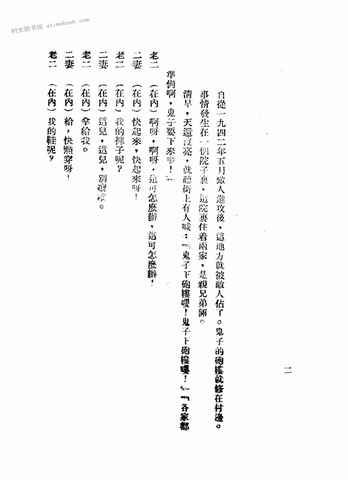 自從一九四二年五月敵人進攻後，這地方就被敵人佔了。鬼子的砲樓就修在村邊。
事情發生在一個院子裏，這院裏住着兩家，是親兄弟倆。
清早，天還沒亮，就聽街上有人喊：「鬼子下砲樓嘍！鬼子下砲樓嘍！」「各家都
準備啊，鬼子要下來啦！」
老二　（在內）啊呀，啊呀，這可怎麼辦，這可怎麼辦！
二妻　（在內）快起來，快起來呀！
老二　（在內）我的褲子呢？
二妻　（在內）這兒，這兒，別
老二　（在內）拿給我。
二妻　（在內）給，快點穿呀！
老二　（在內）我的鞋呢？
二